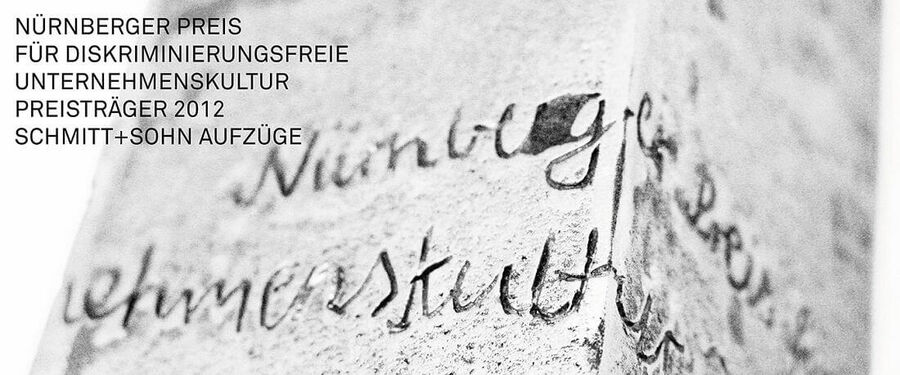 NÜRNBERGER PREIS
FÜR DISKRIMINIERUNGSFREIE
UNTERNEHMENSKULTUR
PREISTRÄGER 2012
SCHMITT+SOHN AUFZÜGE
Nürnberger
nehmenskultur